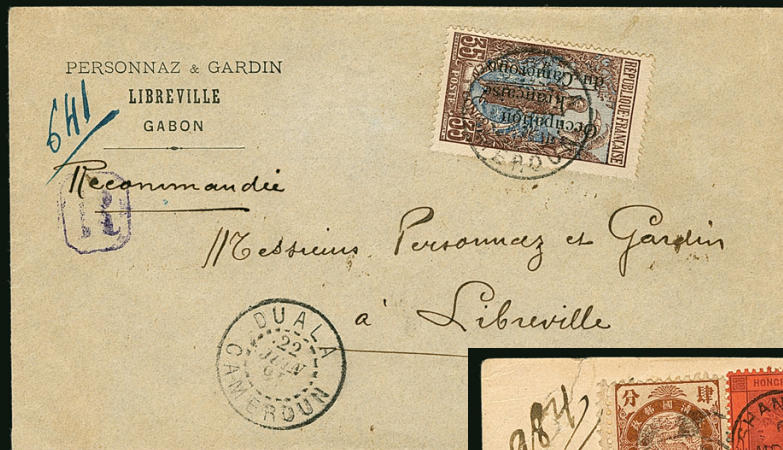 PERSONNAZ & GARDIN
LIBREVILLE
GABON
641
Recommandée
R
REPUBLIQUE FRANÇAISE
35
POSTES
35
Occupation
Française
du Cameroun
Messieurs Personnaz et Gardin
à Libreville
DUALA
22
JUIN
CAMEROUN
984
分
肆
HONG